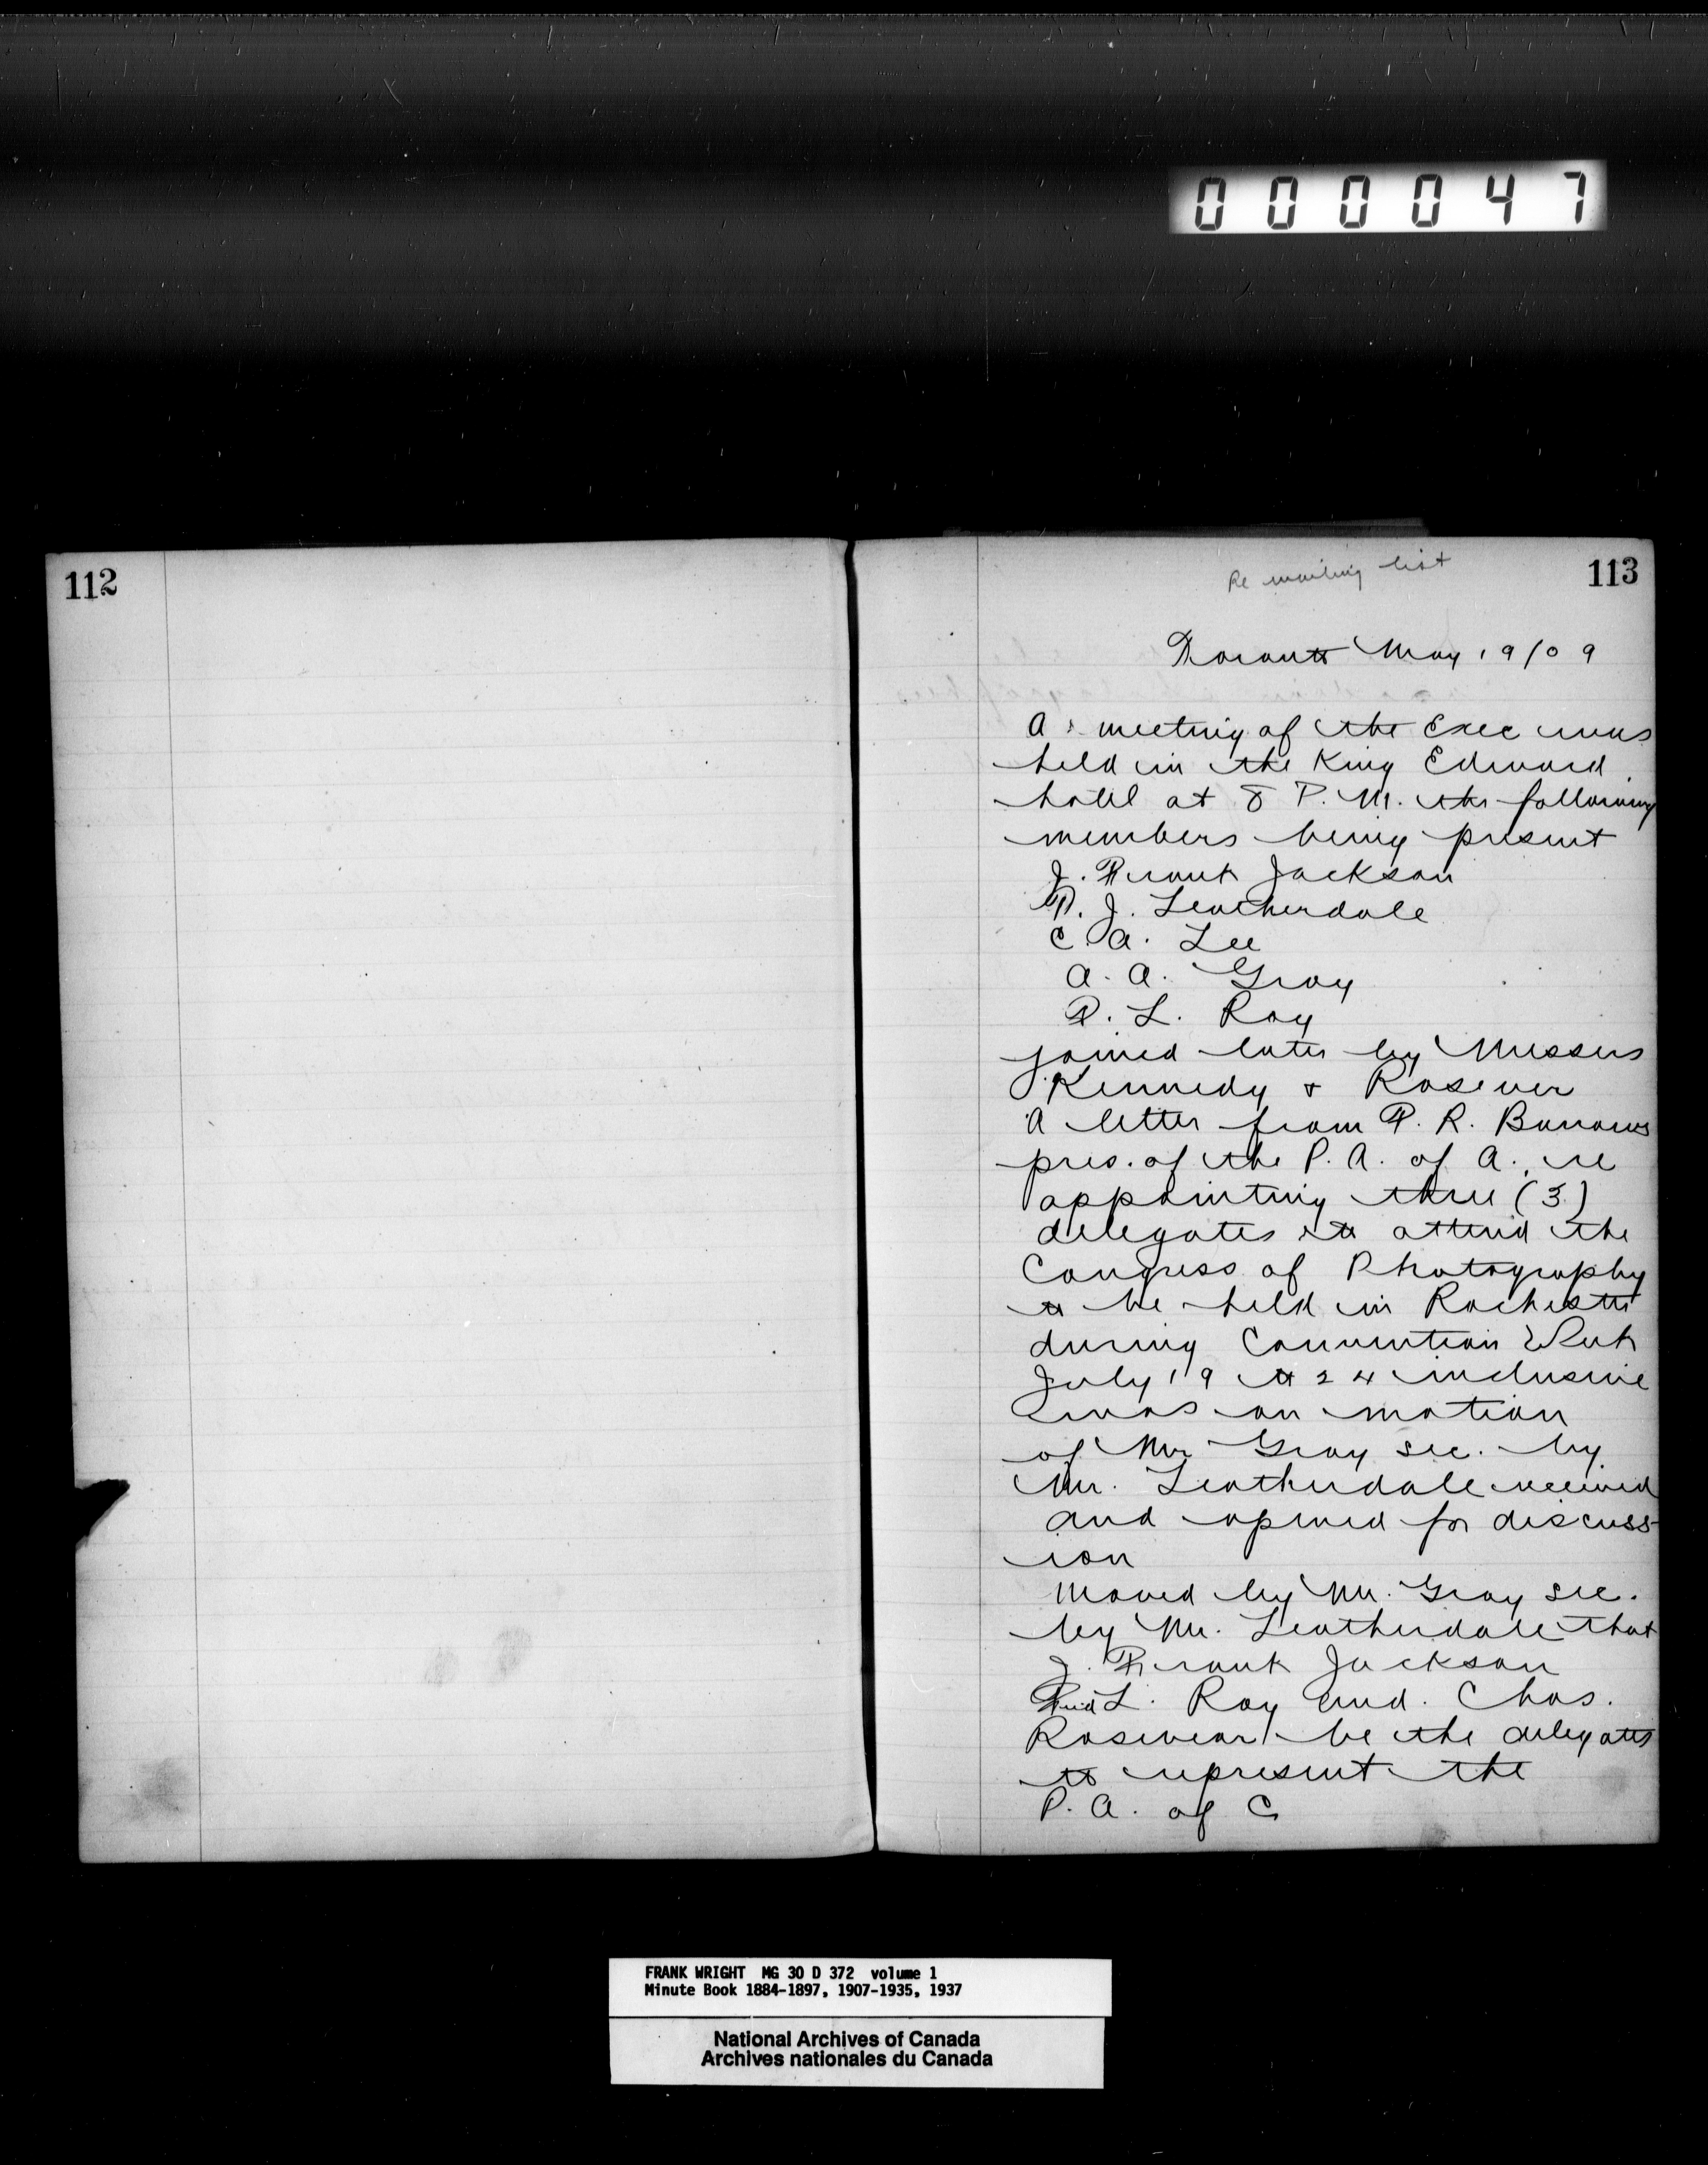 000047
112
113
Re mailing list
Toronto May 19/09
A meeting of the Exec was
held in the King Edward
hotel at 8 P.M. the following
members being present
J. Frank Jackson
P. J. Leatherdale
C. A. Lee
A. A. Gray
F. L. Roy
joined later by Messers
Kennedy & Rosever
A letter from F. R. Barrows
pres. of the P. A. of A., re
appointing three (3)
delegates to attend the
Congress of Photography
to be held in Rochester
during Convention Week
July 19 to 24 inclusive
was on motion
of Mr Gray sec. by
Mr. Leatherdale received
and opened for discuss-
ion
Moved by Mr. Gray sec.
by Mr. Leatherdale that
J. Frank Jackson
Fred L. Roy and. Chas.
Rosevear be the delegates
to represent the
P. A. of C
FRANK WRIGHT MG 30 D 372 volume 1
Minute Book 1884-1897, 1907-1935, 1937
National Archives of Canada
Archives nationales du Canada